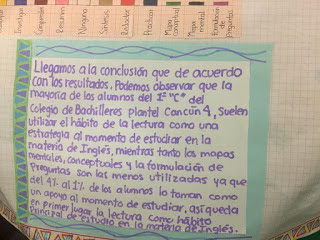 Investigar
Comprender
Resumen
Ninguno
Síntesis
Redactar
Practicar
Mapa conceptual
Mapa mental
Formulación de preguntas
Llegamos a la conclusión que de acuerdo
con los resultados, Podemos observar que la
mayoría de los alumnos del 1° "C" del
Colegio de Bachilleres plantel Cancún 4, Suelen
utilizar el hábito de la lectura como una
estrategia al momento de estudiar en la
materia de Inglés, mientras tanto los mapas
mentales, conceptuales y la formulación de
Preguntas son las menos utilizadas ya que
del 4% al 1% de los alumnos lo toman como
un apoyo al momento de estudiar, así queda
en primer lugar la lectura como hábito
Principal de estudio en la materia de Inglés.